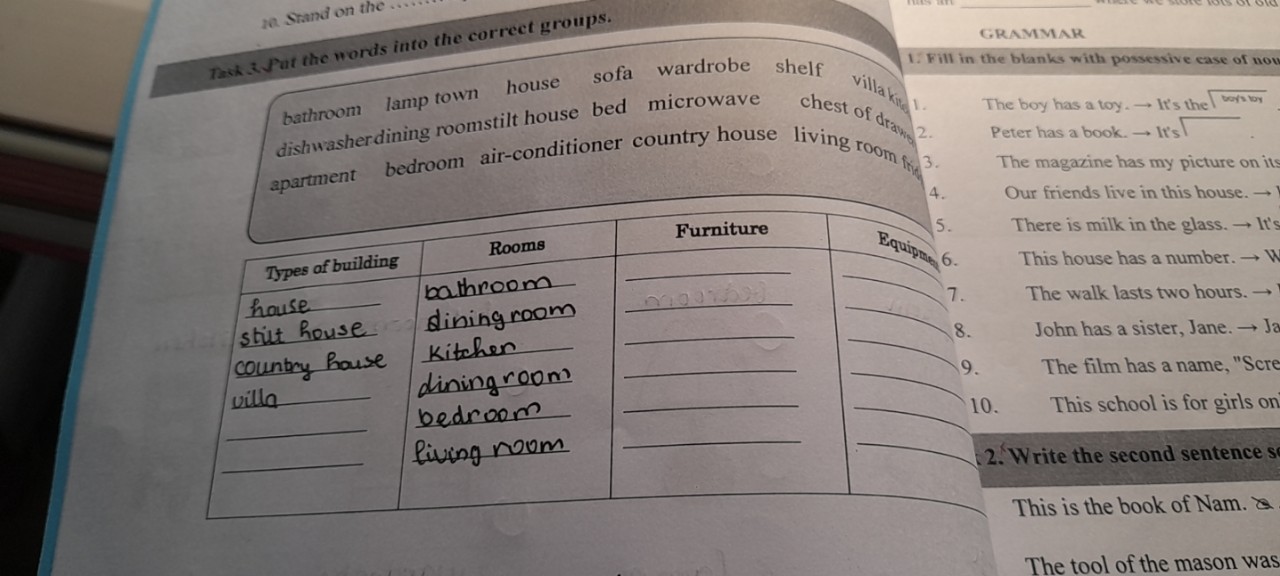 10. Stand on the ........
Task 3. Put the words into the correct groups.
bathroom lamp town house sofa wardrobe shelf villa
dishwasher dining room stilt house bed microwave chest of
apartment bedroom air-conditioner country house living room
Types of building Rooms Furniture
house bathroom
stilt house dining room
country house kitchen
villa dining room
bedroom
living room
where we store lots of old
GRAMMAR
1. Fill in the blanks with possessive case of
1. The boy has a toy. → It's the boy's toy
2. Peter has a book. → It's .
3. The magazine has my picture on its
4. Our friends live in this house. →
5. There is milk in the glass. → It's
6. This house has a number. →
7. The walk lasts two hours. →
8. John has a sister, Jane. →
9. The film has a name, "Scre
10. This school is for girls on
2. Write the second sentence
This is the book of Nam.
The tool of the mason was